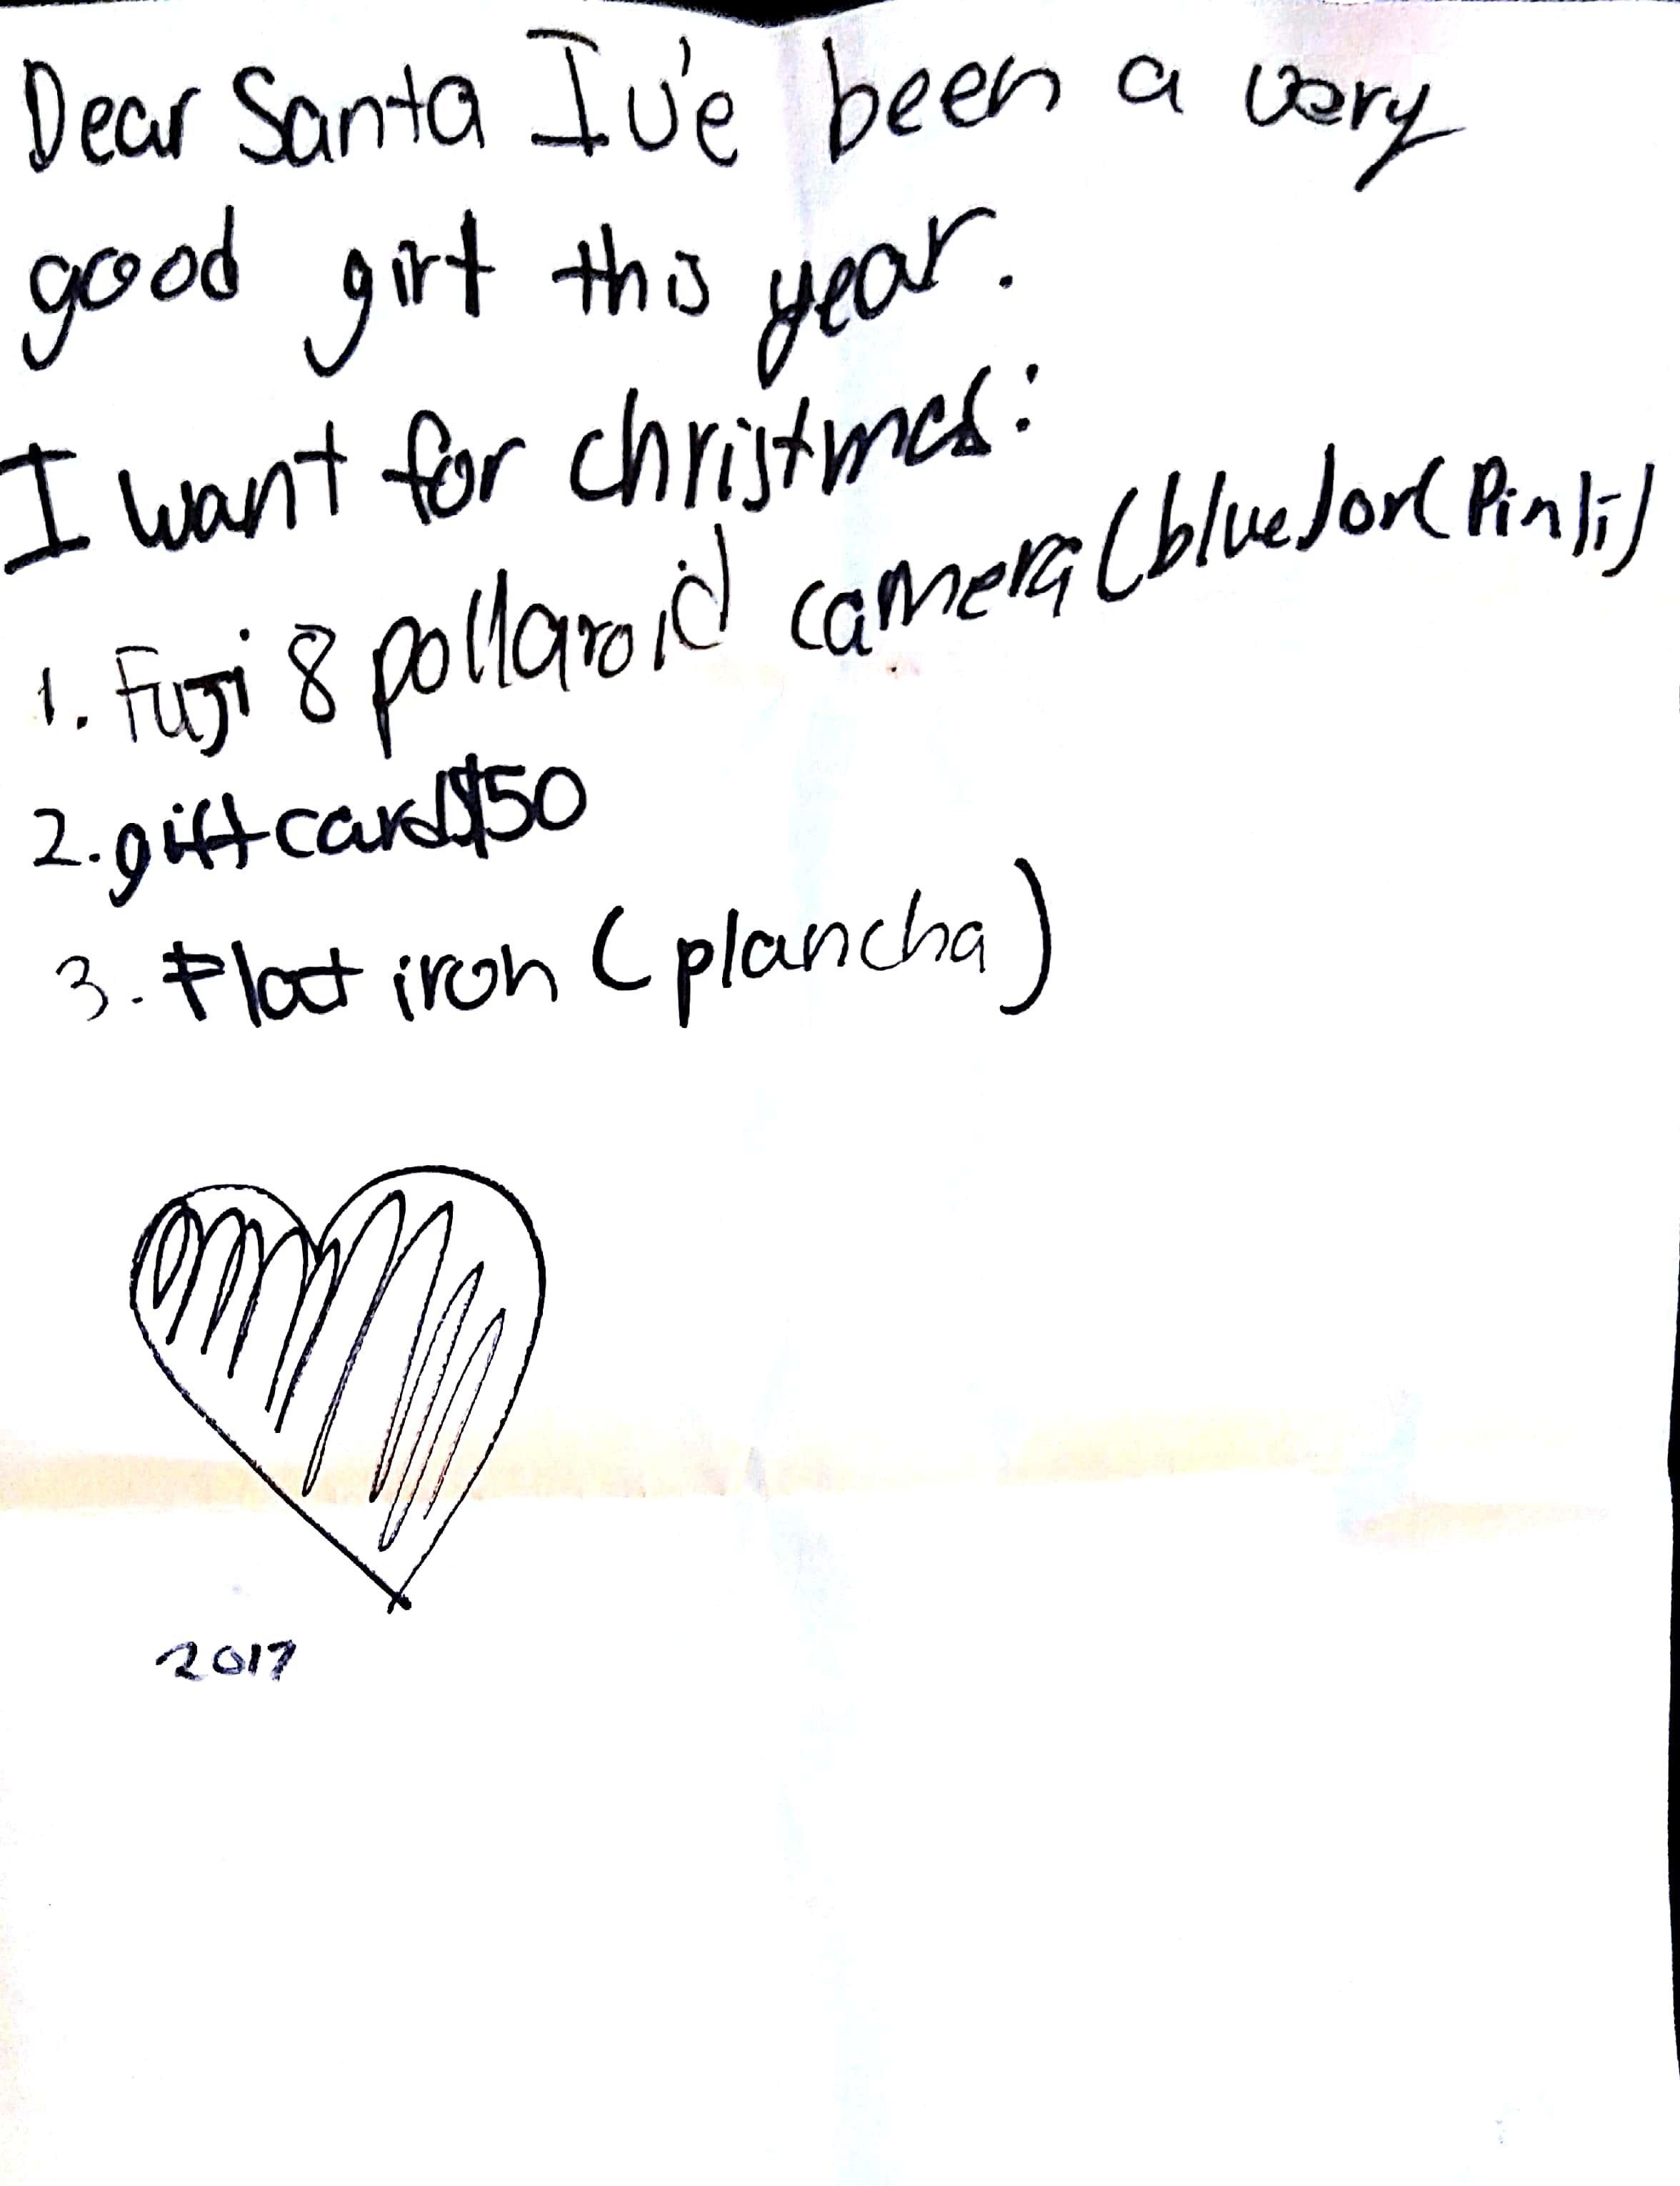 Dear Santa I've been a very
good girl this year.
I want for christmas:
1. Fuji 8 pollaroid camera (blue) or (Pink)
2. gift card $50
3. Flat iron (plancha)
2017